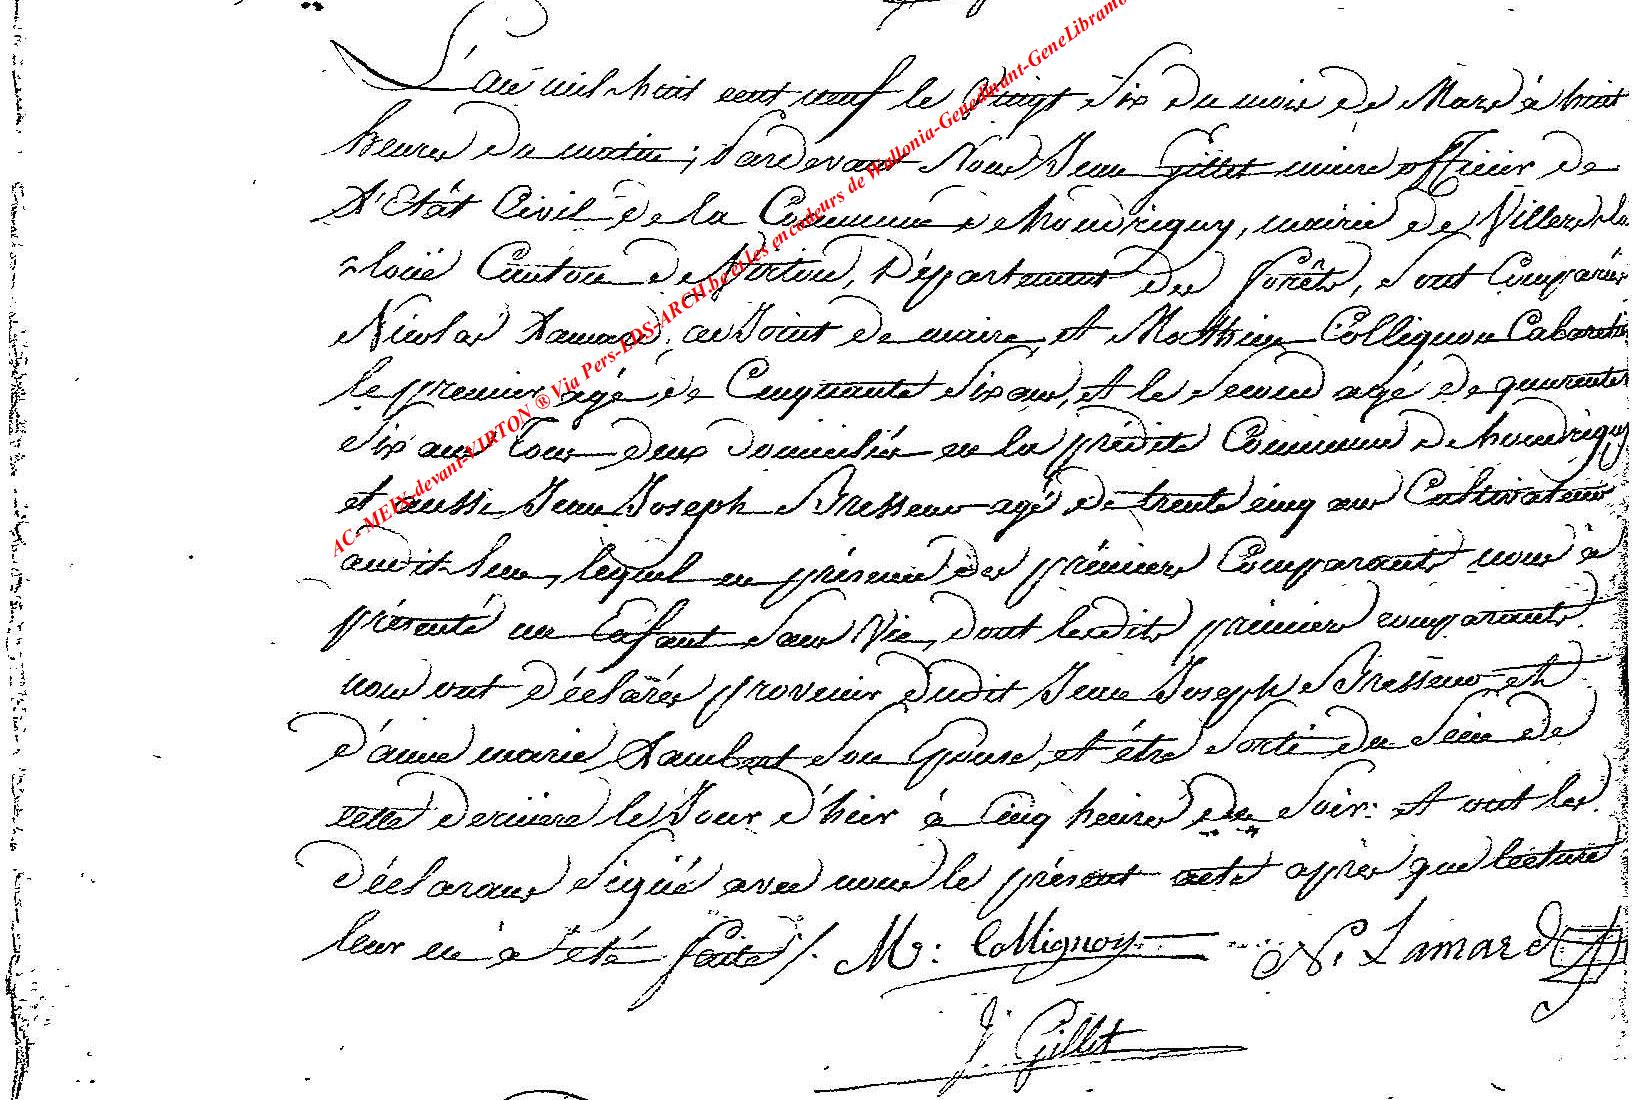 L'an mil huit cent neuf le vingt Six du mois de Mars à huit
heures du matin; Pardevant Nous Jean Gillet maire officier de
L'Etat Civil de la Commune de houdrigny, mairie de Villers-la
-loüe Canton de Virton, Département des forêts, sont Comparus
Nicolas Lamard, adjoint de maire, et Mathieu Collignon Cabaretier
le premier agé de Cinquante Six ans, et le second agé de quarente
Six ans tous deux domiciliés en la prédite Commune de houdrigny
et aussi Jean Joseph Bresseur agé de trente cinq ans Cultivateur
audit lieu, lequel en présence des premiers Comparants nous à
présenté un Enfant Sans Vie, dont lesdits premiers comparants
nous ont déclarés provenir dudit Jean Joseph Bresseur et
d'anne marie Lambert Son Epouse, et être Sorti du Sein de
cette derniere le Jour d'hier à Cinq heures du Soir: et ont les
déclarans Signé avec nous le présent acte apres que lecture
leur en a été faite /. M: Collignon N. Lamard
J. Gillet
AC- MEIX-devant-VIRTON ® Via Pers-EDS-ARCH.be et les encodeurs de Wallonia-Genedinant-GeneLibramo